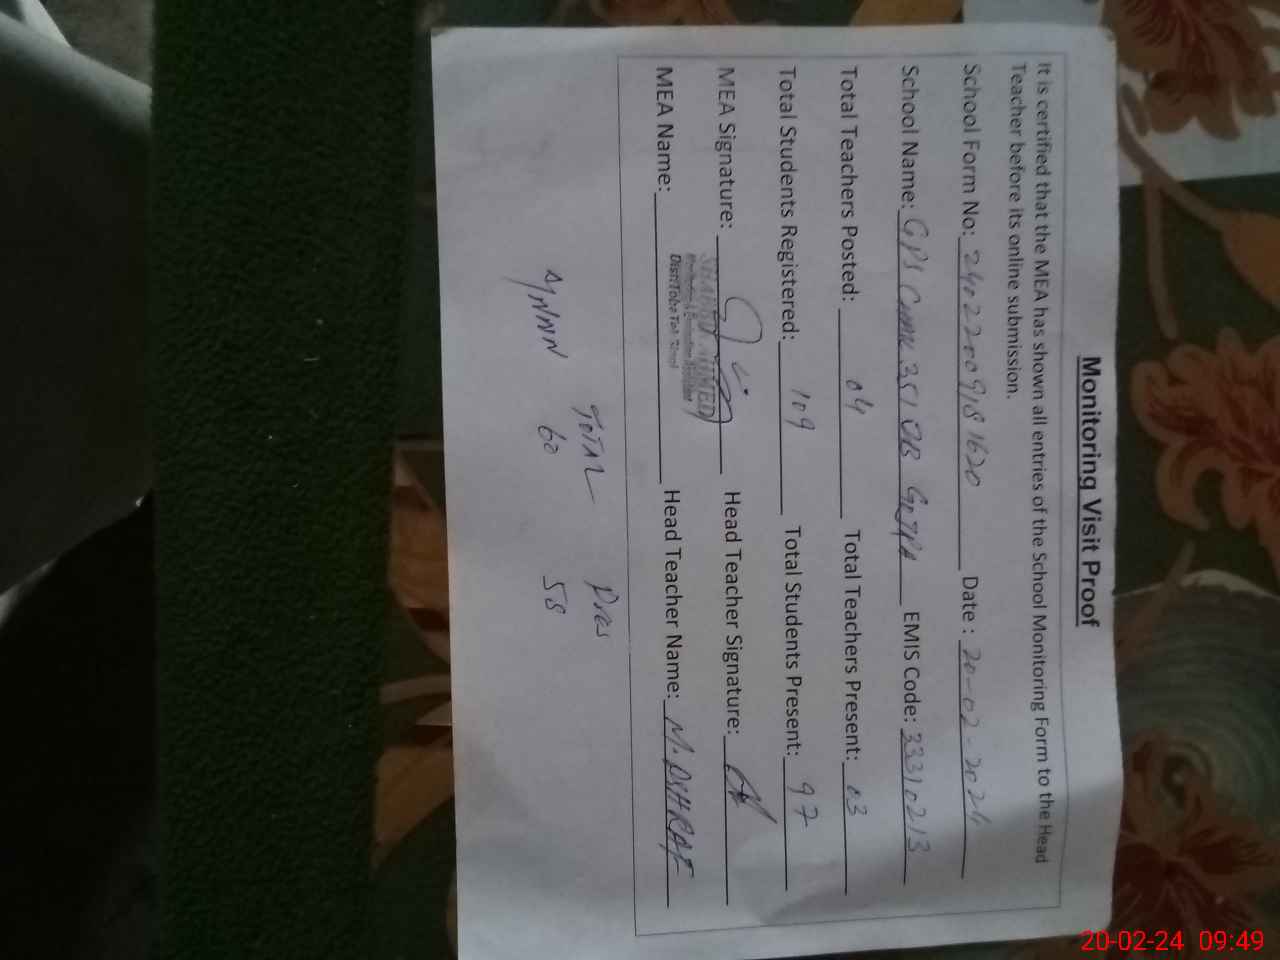 Monitoring Visit Proof
It is certified that the MEA has shown all entries of the School Monitoring Form to the Head
Teacher before its online submission.
School Form No: Date : 20-02-2024
School Name: GPS 351 EMIS Code: 33310213
Total Teachers Posted: 04 Total Teachers Present: 03
Total Students Registered: 109 Total Students Present: 97
MEA Signature: Head Teacher Signature:
MEA Name: Head Teacher Name: M. ASHRAF
AHMED
Monitoring & Evaluation Assistant
Distt: Toba Tek Singh
TOTAL Pres
60 58
20-02-24 09:49